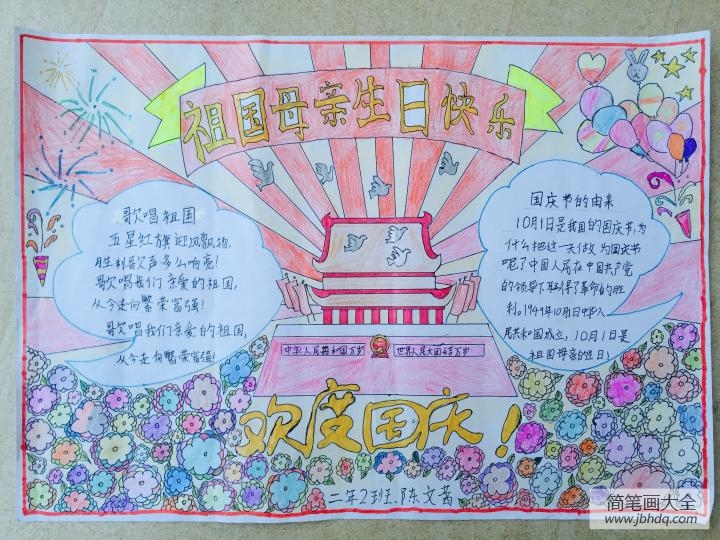 祖国母亲生日快乐
歌唱祖国
五星红旗迎风飘扬,
胜利歌声多么响亮!
歌唱我们亲爱的祖国,
从今走向繁荣富强!
歌唱我们亲爱的祖国,
从今走向繁荣富强!
国庆节的由来
10月1日是我国的国庆节,为
什么把这一天做为国庆节
呢?中国人民在中国共产党
的领导下取得了革命的胜
利。1949年10月1日中华人
民共和国成立,10月1日是
祖国母亲的生日!
中华人民共和国万岁
世界人民大团结万岁
欢度国庆!
二年2班.陈文
简笔画大全
www.jbhdq.com